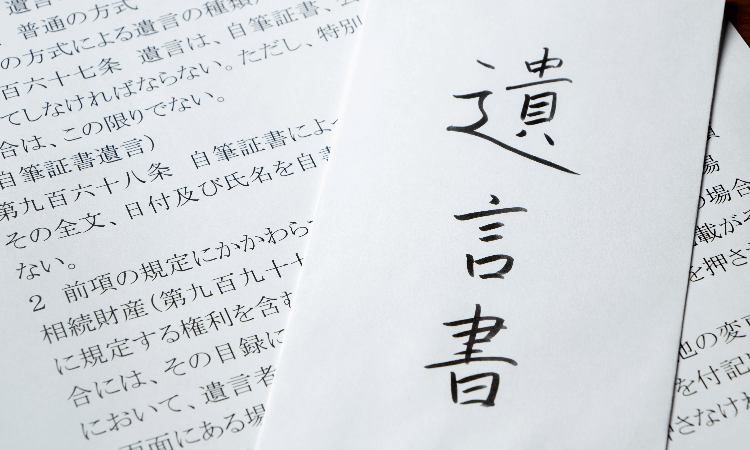 遺言
普通の方式
の方式による遺言の種類
百六十七条 遺言は、自筆証書、公
てしなければならない。ただし、特別
合は、この限りでない。
自筆証書遺言）
第九百六十八条 自筆証書によ
その全文、日付及び氏名を自書
ない。
2 前項の規定にかかわら
相続財産（第九百九十七
に規定する権利を含む
合には、その目録に
において、遺言者
両面にある場
遺言書
場
場合
載がそ
を押さ
他の変
を付記
さなけれ